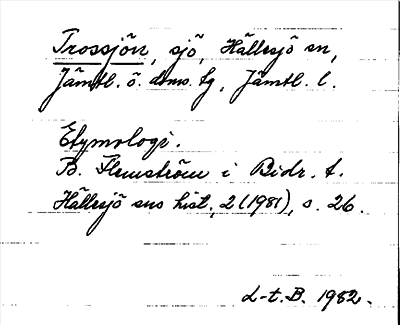 Trossjön, sjö, Hällesjö sn,
Jämtl. ö. dms. tg, Jämtl. l.
Etymologi.
B. Flemström i Bidr. t.
Hällesjö sns hist., 2 (1981), s. 26.
L-t. B. 1982.